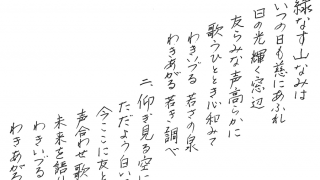 緑なす山なみは
いつの日も慈にあふれ
日の光輝く窓辺
友らみな声高らかに
歌うひととき心和みて
わきいづる若さの泉
わきあがる若き調べ
二、仰ぎ見る空に
ただよう白い
今ここに友と
声合わせ歌
未来を語り
わきいづる
わきあがる